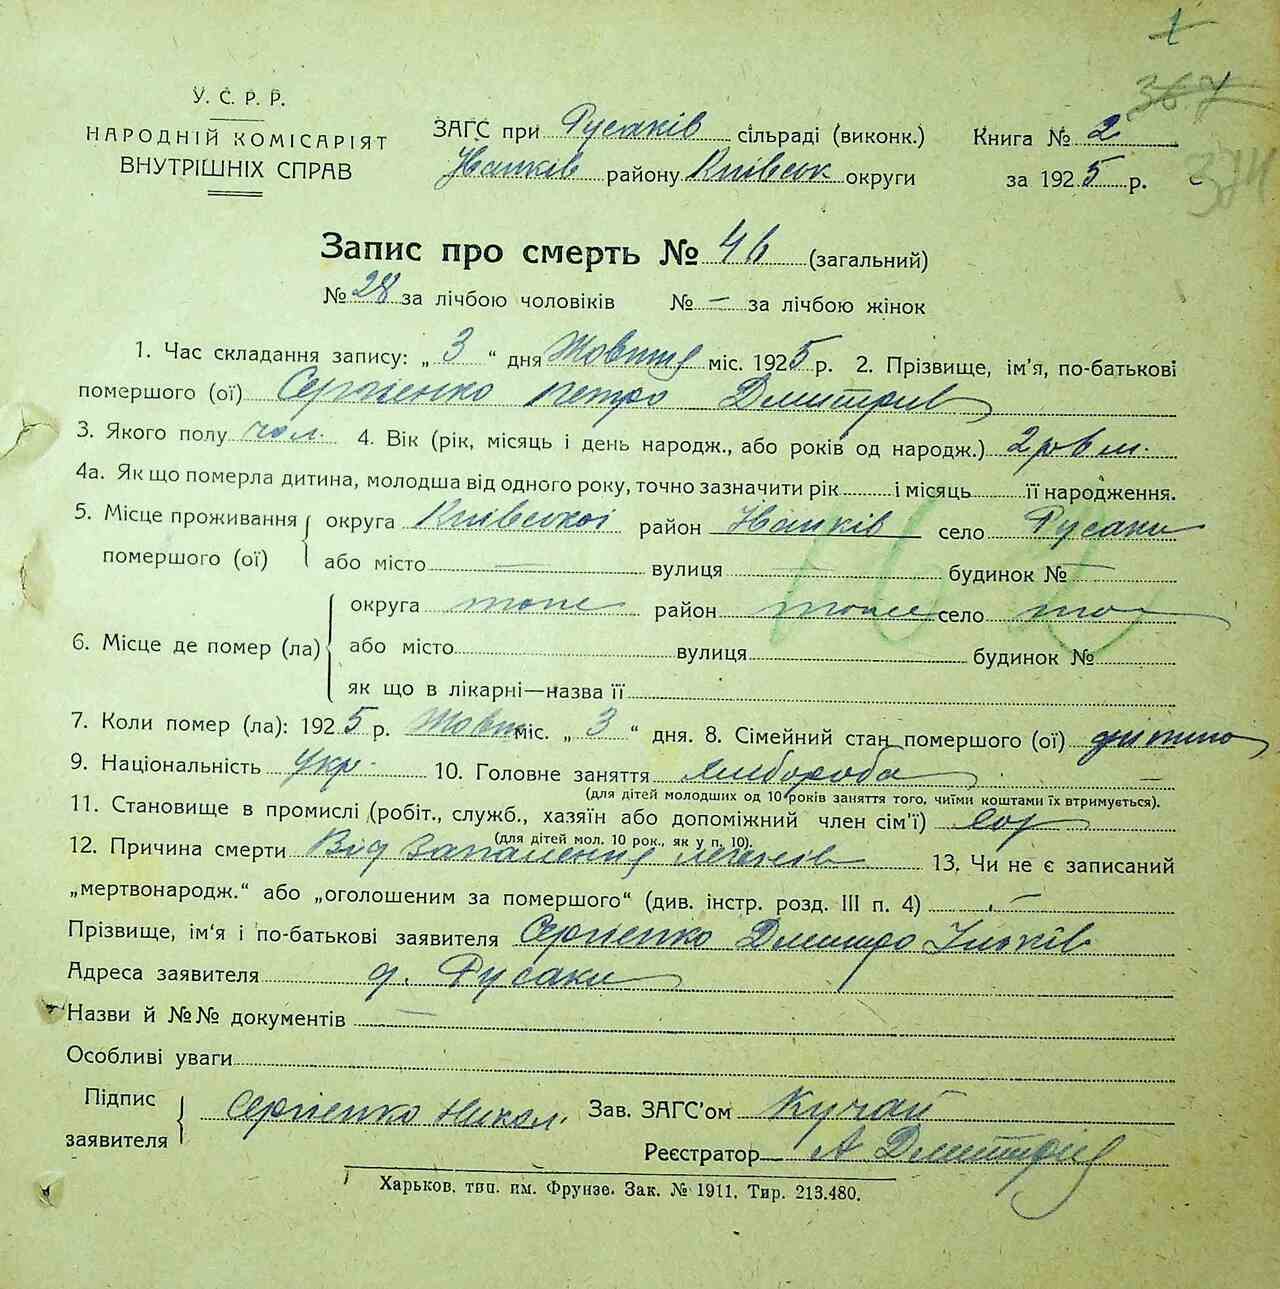 1
367
374
У. С. Р. Р.
НАРОДНІЙ КОМІСАРІЯТ
ВНУТРІШНІХ СПРАВ
ЗАГС при Русаків сільраді (виконк.)
Іванків району Київськ округи
Книга № 2
за 1925 р.
Запис про смерть № 46 (загальний)
№ 28 за лічбою чоловіків № — за лічбою жінок
1. Час складання запису: „ 3 “ дня Жовтня міс. 1925 р. 2. Прізвище, ім'я, по-батькові
помершого (ої) Сергієнко Петро Дмитрів
3. Якого полу чол. 4. Вік (рік, місяць і день народж., або років од народж.) 2 р 6 м.
4а. Як що померла дитина, молодша від одного року, точно зазначити рік і місяць її народження.
5. Місце проживання помершого (ої) округа Київської район Іванків село Русаки
або місто — вулиця — будинок № —
6. Місце де помер (ла) округа тоже район тоже село то
або місто вулиця будинок №
як що в лікарні—назва її
7. Коли помер (ла): 1925 р. Жовт міс. „ 3 “ дня. 8. Сімейний стан помершого (ої) дитина
9. Національність Укр. 10. Головне заняття хлібороба
(для дітей молодших од 10 років заняття того, чиїми коштами їх втримується).
11. Становище в промислі (робіт., служб., хазяїн або допоміжний член сім'ї)
(для дітей мол. 10 рок., як у п. 10).
12. Причина смерти Від Запалення легенів 13. Чи не є записаний
„мертвонародж.“ або „оголошеним за помершого“ (див. інстр. розд. III п. 4) —
Прізвище, ім'я і по-батькові заявителя Сергієнко Дмитро Ільків
Адреса заявителя д. Русаки
Назви й №№ документів —
Особливі уваги
Підпис заявителя Сергієнко Зав. ЗАГС'ом Кучай
Реєстратор А Дмитрів
Харьков, тип. им. Фрунзе. Зак. № 1911. Тир. 213.480.